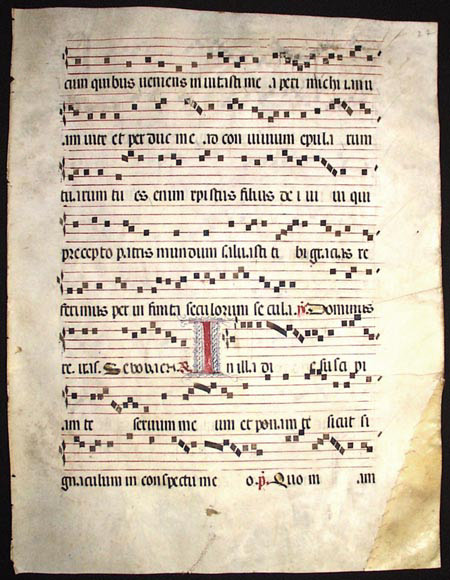 27
cum quibus ueniens inuitasti me aperi michi ianu
am uite et perduc me ad conuiuium epula rum
tuarum tu es enim xpistus filius dei ui ui qui
precepto patris mundum saluasti ti bi gracias re
ferimus per infinita seculorum secula. p. Dominus
re. itas. In illa di e suscipi
am te seruum me um et ponam te sicut si
gnaculum in conspectu me o. p. Quo ni am